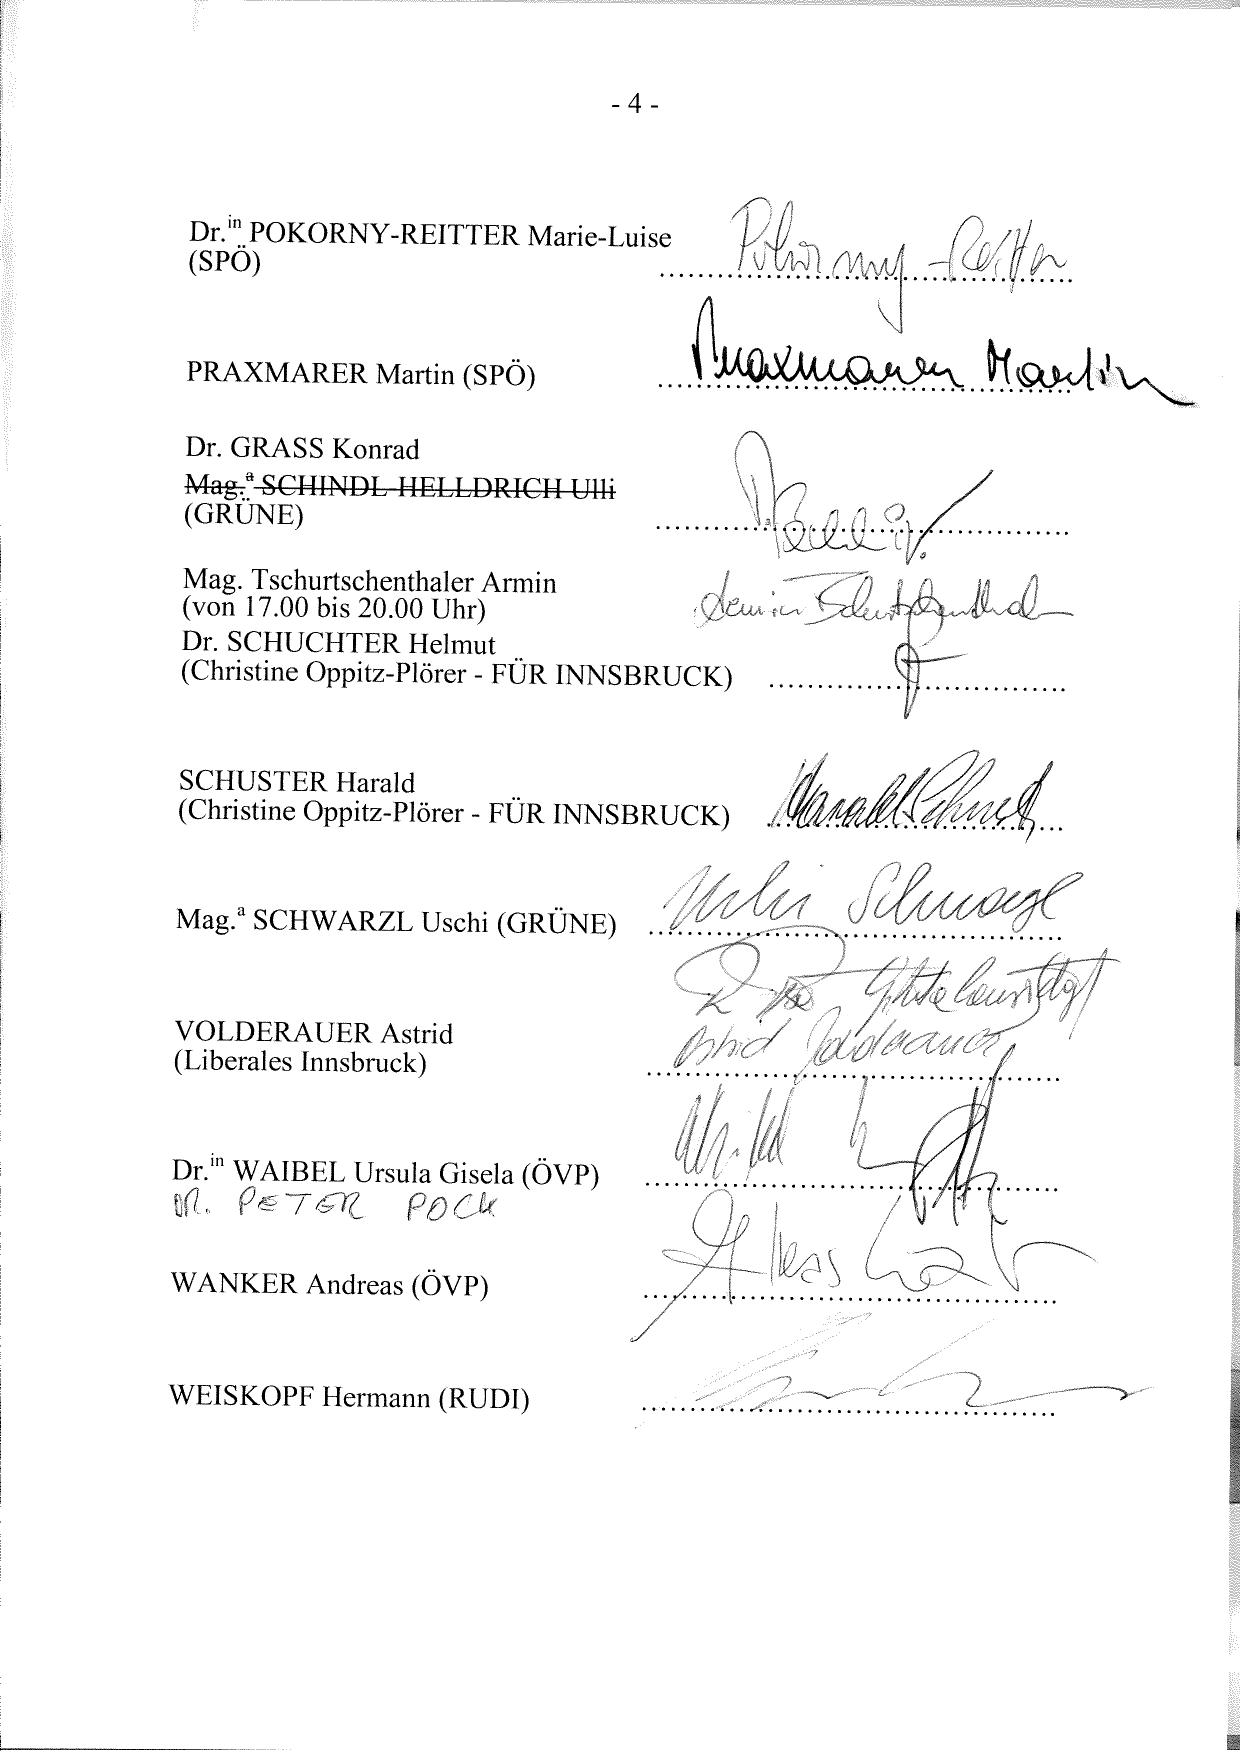 - 4 -
Dr.in POKORNY-REITTER Marie-Luise
(SPÖ)
Pokorny-Reitter
PRAXMARER Martin (SPÖ)
Praxmarer Martin
Dr. GRASS Konrad
Mag.a SCHINDL-HELLDRICH Ulli
(GRÜNE)
Mag. Tschurtschenthaler Armin
(von 17.00 bis 20.00 Uhr)
Armin Tschurtschenthaler
Dr. SCHUCHTER Helmut
(Christine Oppitz-Plörer - FÜR INNSBRUCK)
SCHUSTER Harald
(Christine Oppitz-Plörer - FÜR INNSBRUCK)
Harald Schuster
Mag.a SCHWARZL Uschi (GRÜNE)
Uschi Schwarzl
VOLDERAUER Astrid
(Liberales Innsbruck)
Astrid Volderauer
Dr.in WAIBEL Ursula Gisela (ÖVP)
DR. PETER POCK
WANKER Andreas (ÖVP)
Andreas
WEISKOPF Hermann (RUDI)